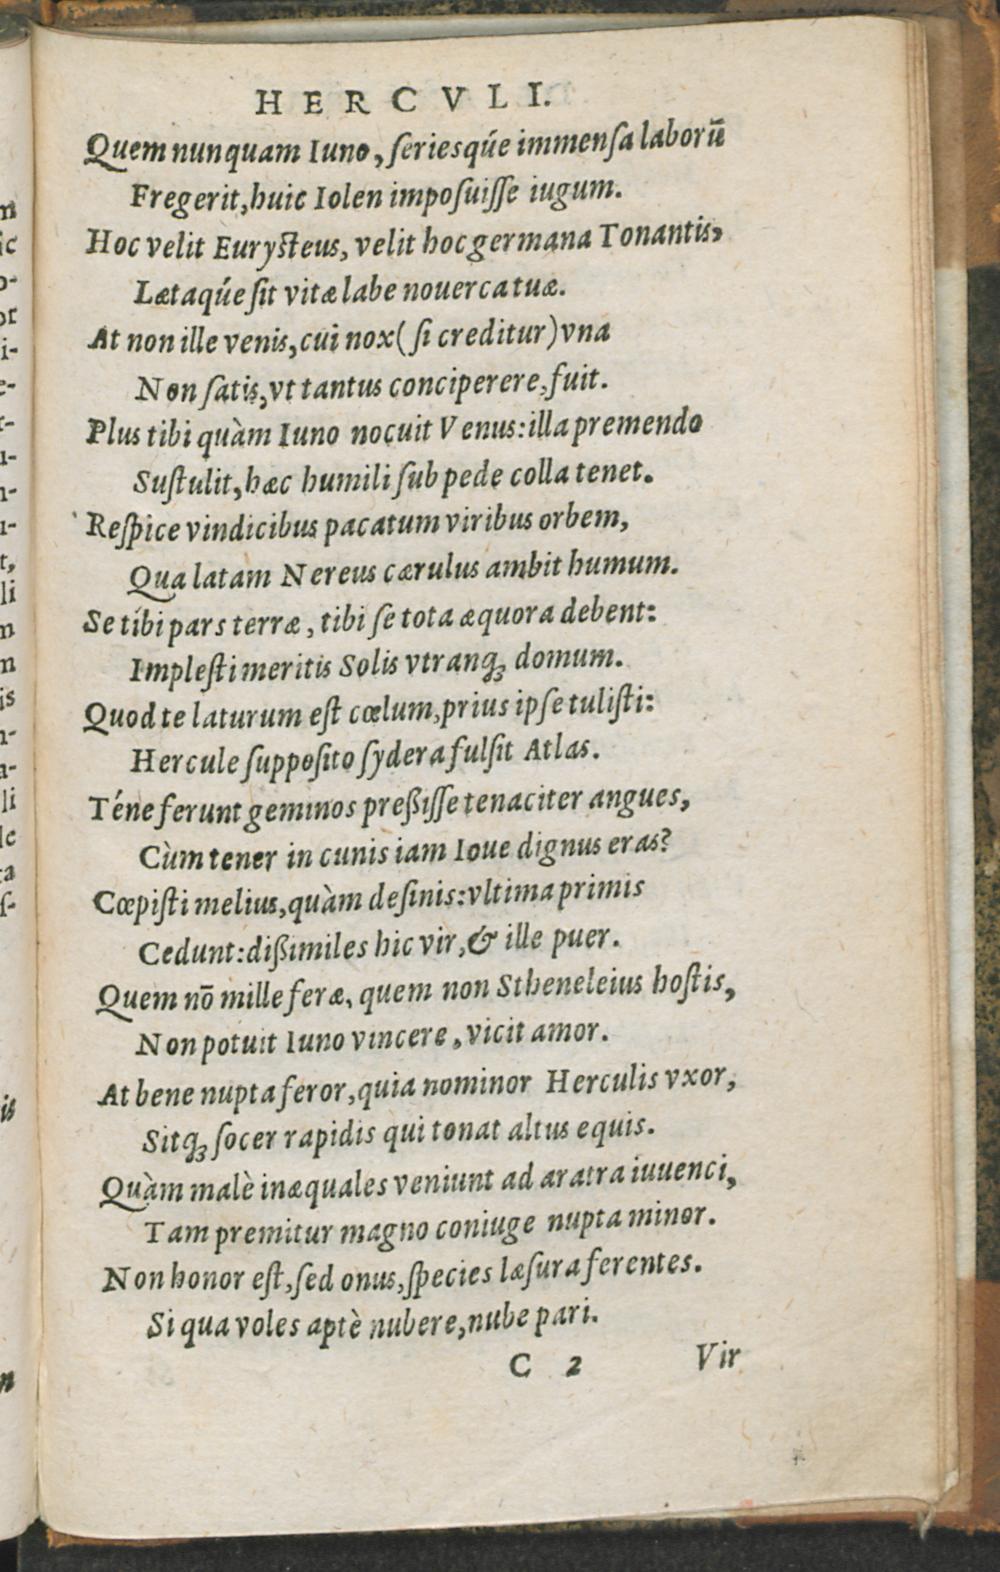 HERCVLI.
Quem nunquam Iuno, ſeriesq́ue immenſa laborū
Fregerit, huic Iolen impoſuiſſe iugum.
Hoc velit Euryſteus, velit hoc germana Tonantis,
Lætaq́ue ſit vitæ labe nouerca tuæ.
At non ille venis, cui nox (ſi creditur) vna
Non ſatis, vt tantus conciperere, fuit.
Plus tibi quàm Iuno nocuit Venus: illa premendo
Suſtulit, hæc humili ſub pede colla tenet.
Reſpice vindicibus pacatum viribus orbem,
Qua latam Nereus cærulus ambit humum.
Se tibi pars terræ, tibi ſe tota æquora debent:
Impleſti meritis Solis vtranq; domum.
Quod te laturum eſt cœlum, prius ipſe tuliſti:
Hercule ſuppoſito ſydera fulſit Atlas.
Téne ferunt geminos preßiſſe tenaciter angues,
Cùm tener in cunis iam Ioue dignus eras?
Cœpiſti melius, quàm deſinis: vltima primis
Cedunt: dißimiles hic vir, & ille puer.
Quem nō mille feræ, quem non Stheneleius hoſtis,
Non potuit Iuno vincere, vicit amor.
At bene nupta feror, quia nominor Herculis vxor,
Sitq; ſocer rapidis qui tonat altus equis.
Quàm malè inæquales veniunt ad aratra iuuenci,
Tam premitur magno coniuge nupta minor.
Non honor eſt, ſed onus, ſpecies læſura ferentes.
Si qua voles aptè nubere, nube pari.
C 2 Vir